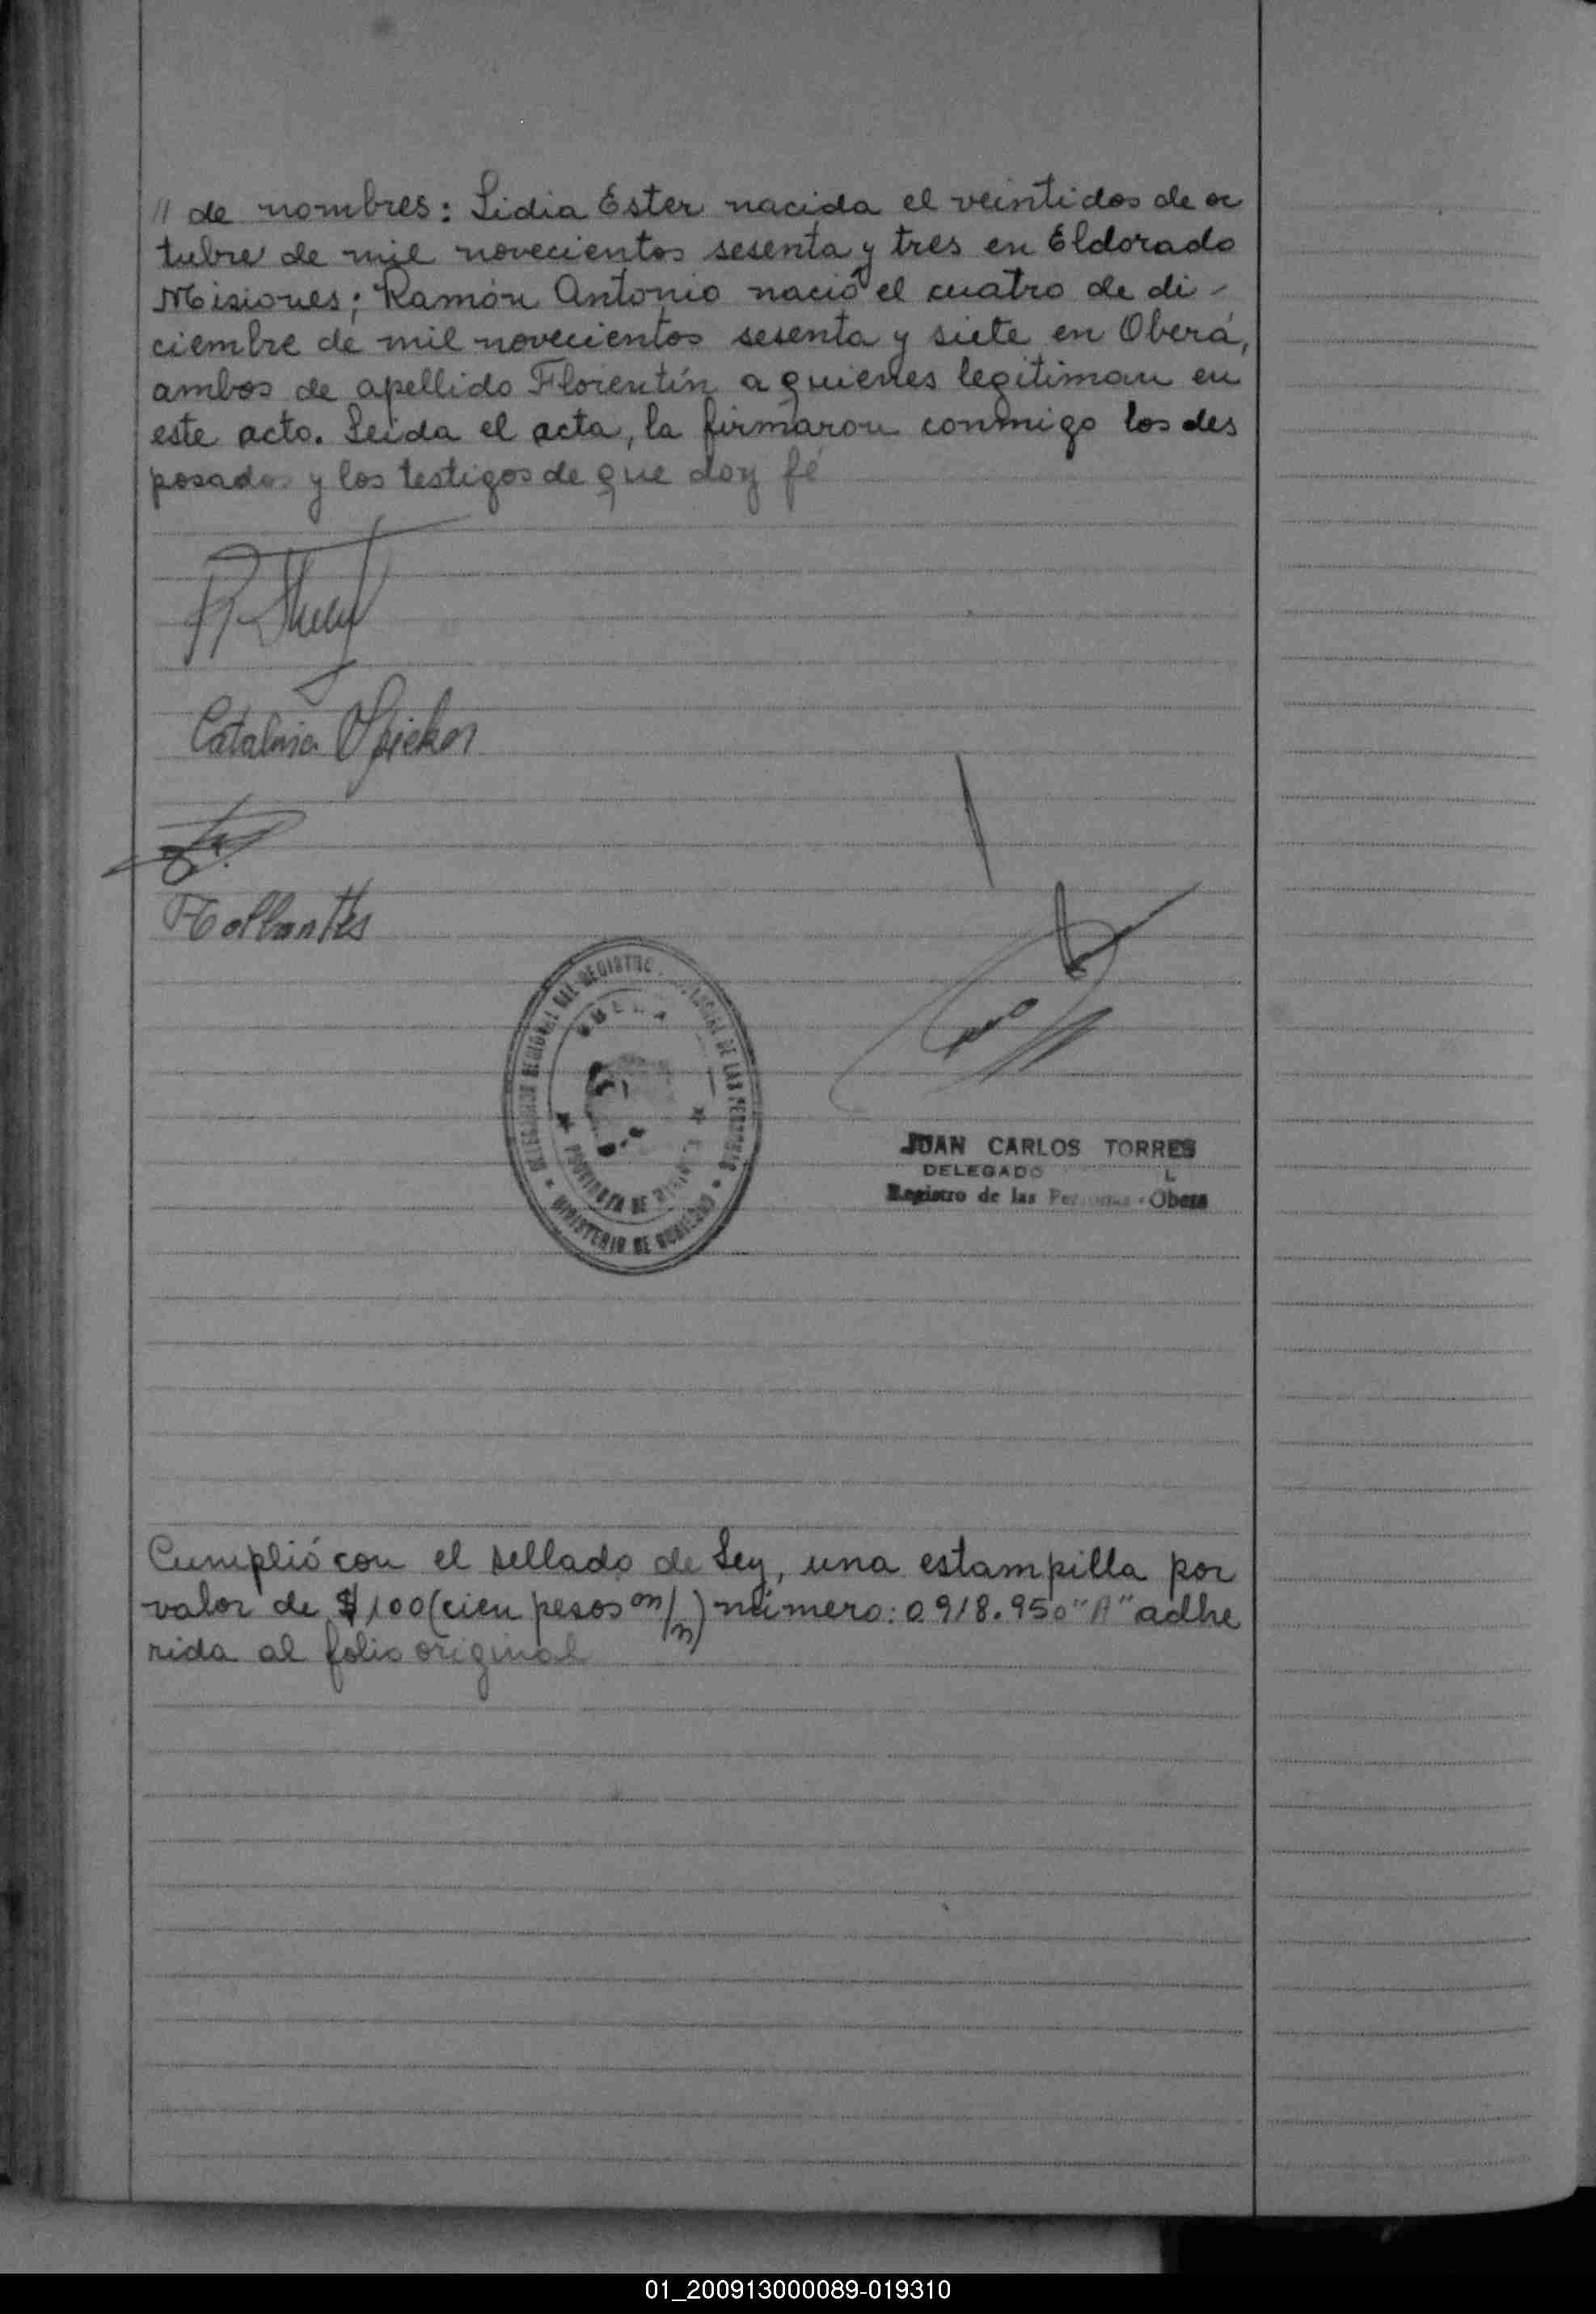 // de nombres: Lidia Ester nacida el veintidos de oc
tubre de mil novecientos sesenta y tres en Eldorado
Misiones; Ramón Antonio nació el cuatro de di-
ciembre de mil novecientos sesenta y siete en Oberá,
ambos de apellido Florentín a quienes legitiman en
este acto. Leida el acta, la firmaron conmigo los des
posados y los testigos de que doy fé
Catalina
DELEGACION REGIONAL DEL REGISTRO DE LAS PERSONAS
OBERA
PROVINCIA DE
MINISTERIO DE GOBIERNO
JUAN CARLOS TORRES
DELEGADO
Registro de las Personas - Obera
Cumplió con el sellado de Ley, una estampilla por
valor de $100 (cien pesos m/n) número: 0918.950 "A" adhe
rida al folio original
01_200913000089-019310